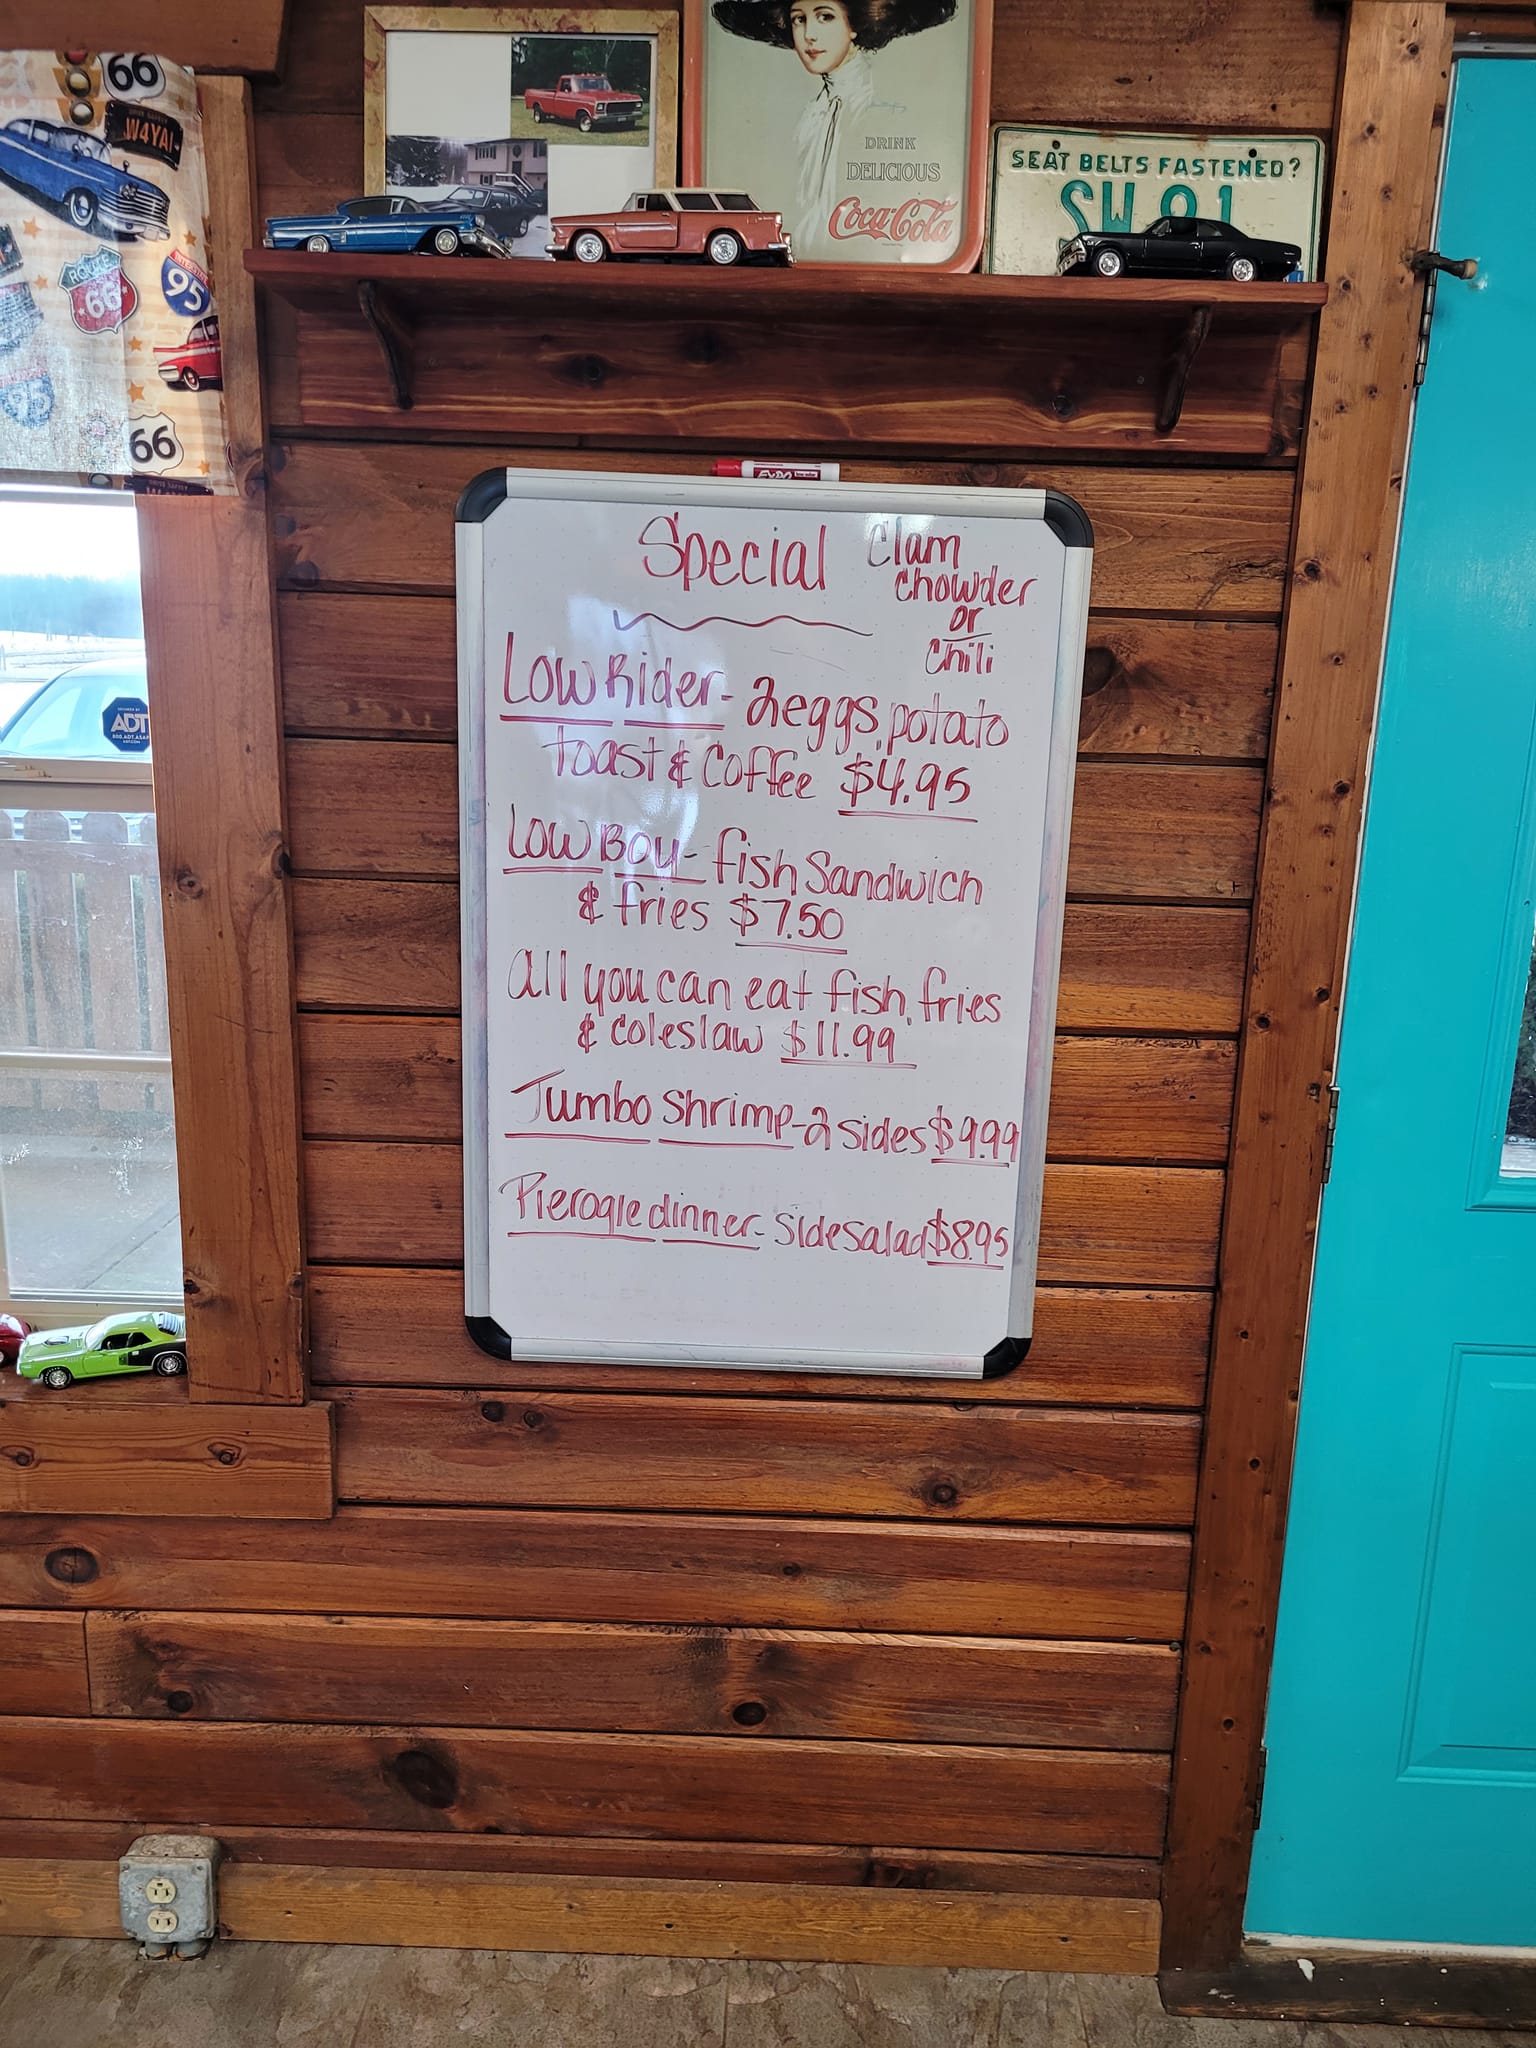 66
W4YA!
ROUTE
66
INTERSTATE
95
95
66
DRINK
DELICIOUS
Coca-Cola
SEAT BELTS FASTENED?
SW 91
EXPO
ADT
Special
Clam
Chowder
or
Chili
Low Rider- 2 eggs, potato
toast & Coffee $4.95
Low Boy- fish Sandwich
& fries $7.50
All you can eat fish, fries
& Coleslaw $11.99
Jumbo Shrimp-2 sides $9.99
Pierogie dinner- Side Salad $8.95